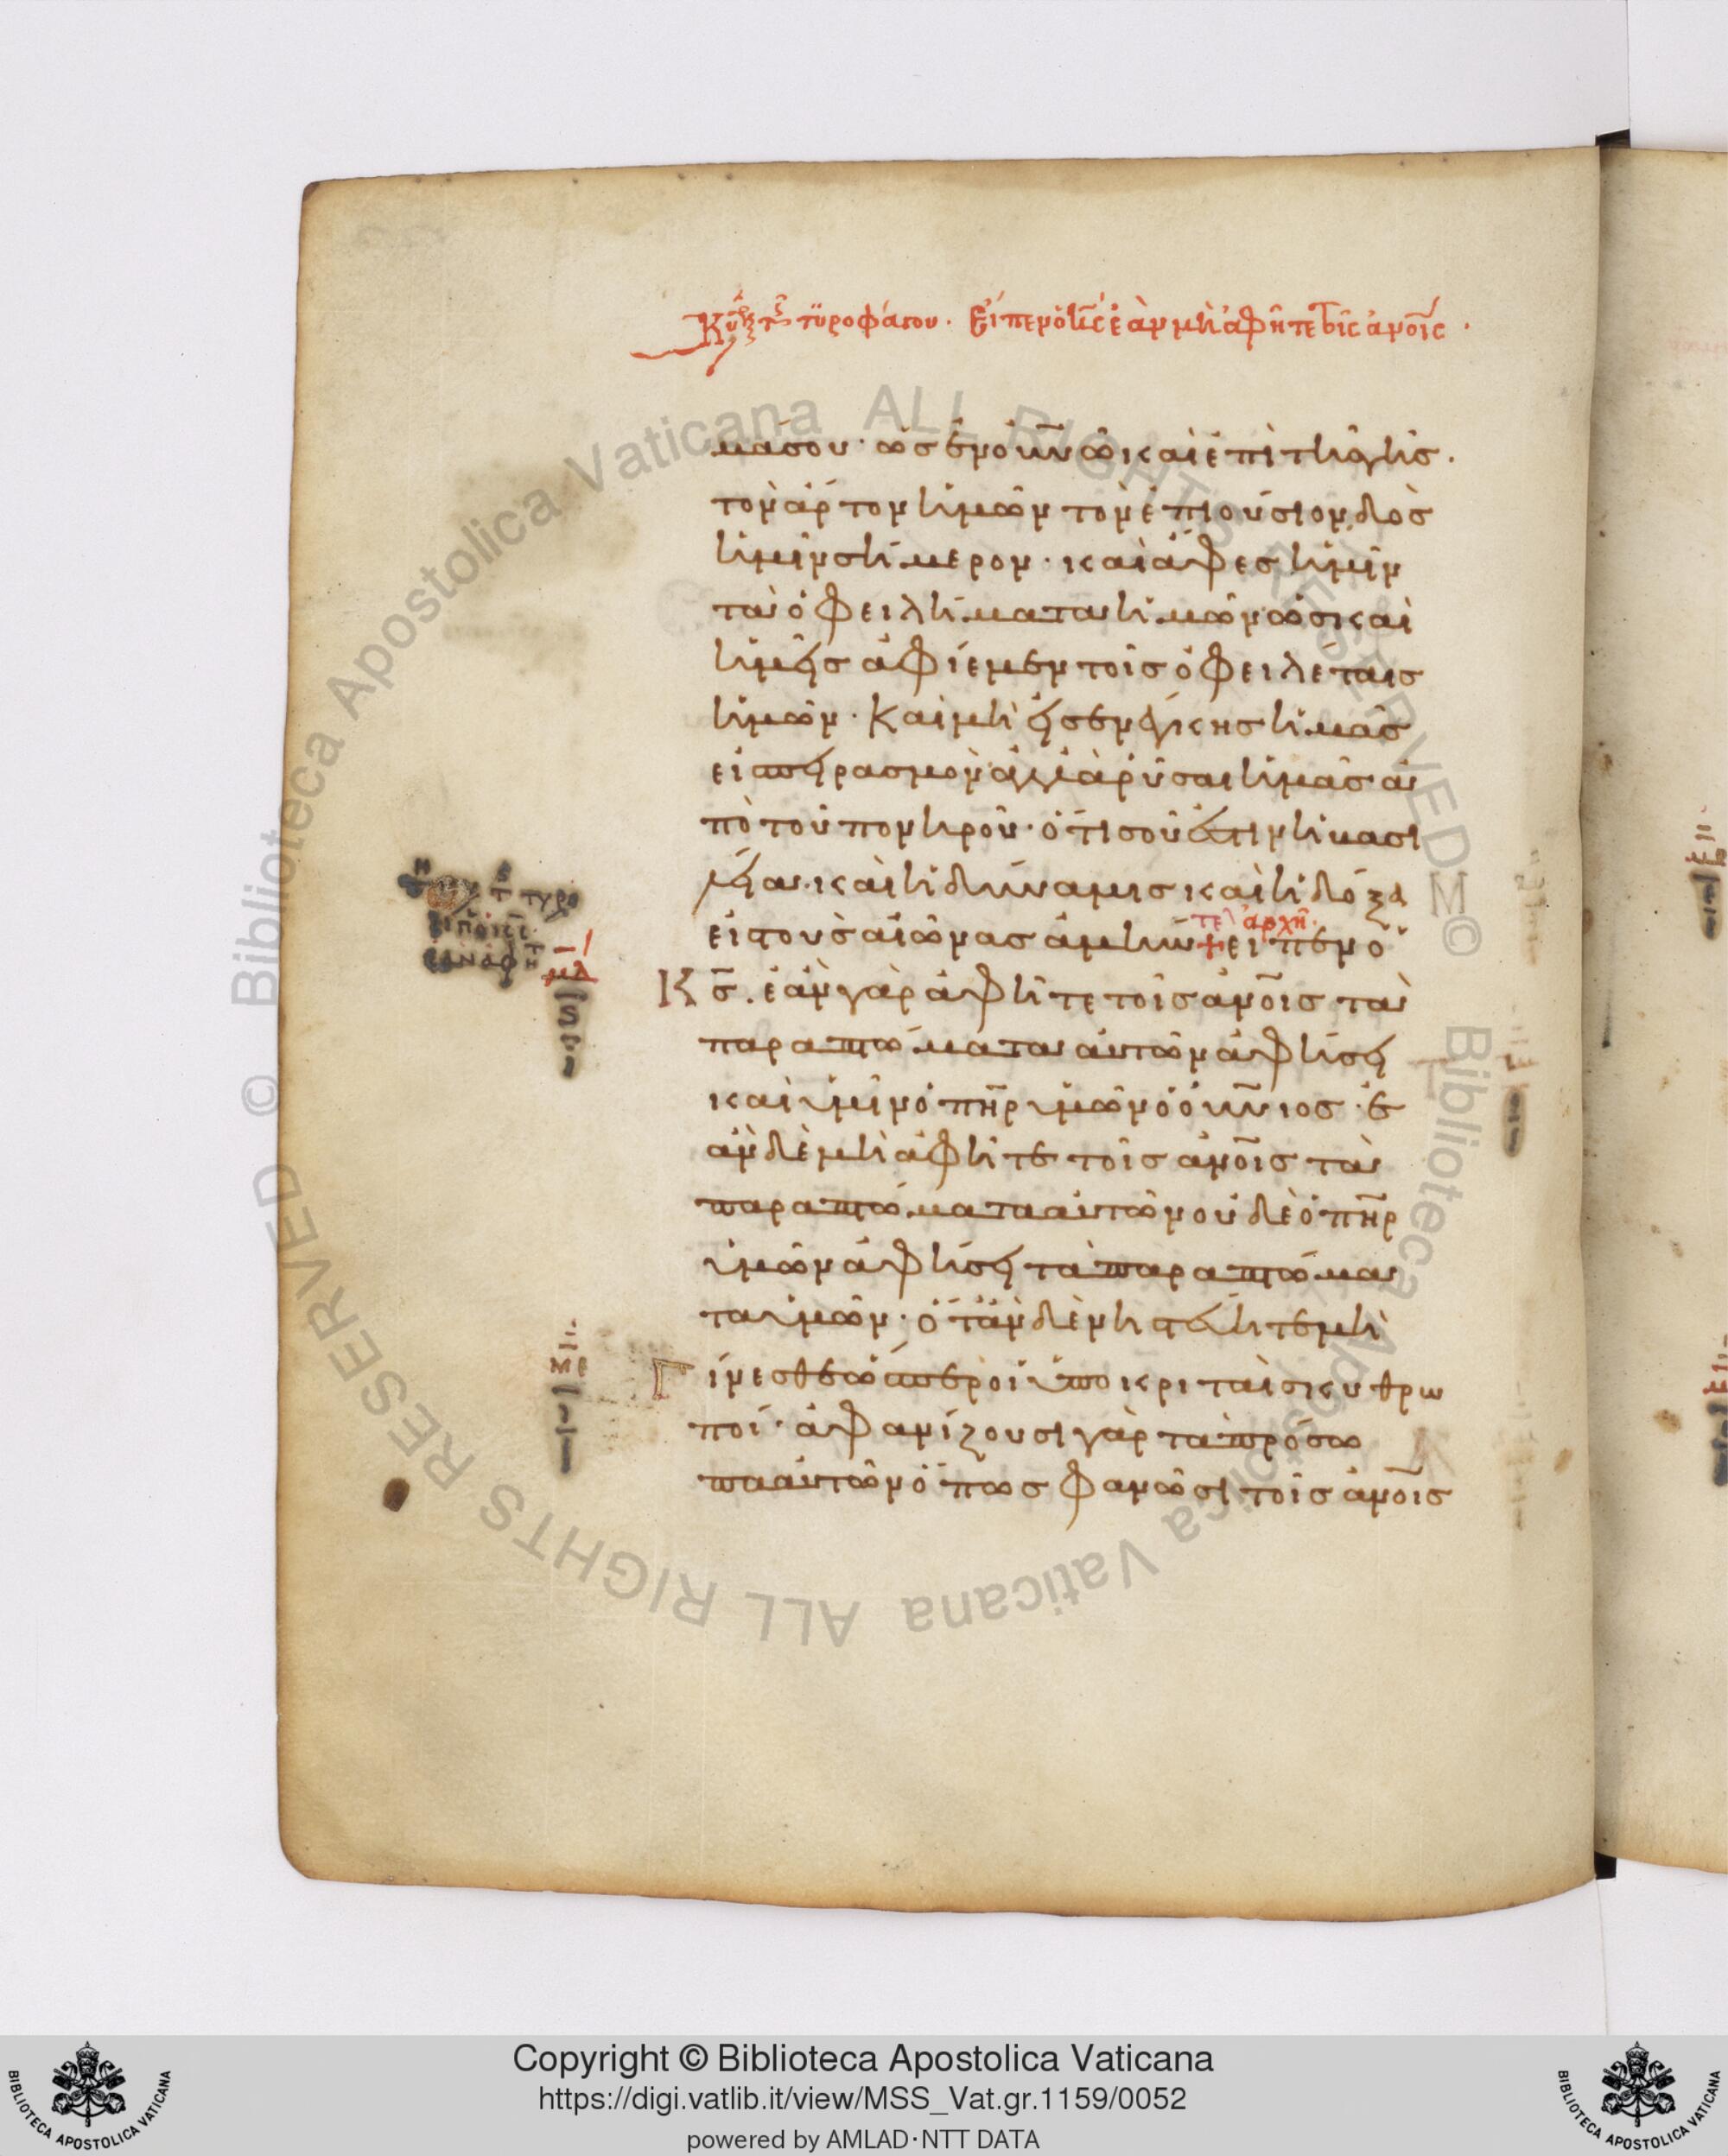 Κυ τ τυροφάγου. Εἶπεν ὁ κς ἐὰν μὴ ἀφῆτε τοῖς ἀνοις.
μά σου· ὡς ἐν οὐνῶ καὶ ἐπὶ τῆς γῆς.
τὸν ἄρτον ἡμῶν τὸν ἐπιούσιον δὸς
ἡμῖν σήμερον· καὶ ἄφες ἡμῖν
τὰ ὀφειλήματα ἡμῶν ὡς καὶ
ἡμεῖς ἀφίεμεν τοῖς ὀφειλέταις
ἡμῶν. Καὶ μὴ εἰσενείκης ἡμᾶς
εἰ πειρασμὸν ἀλλὰ ῥῦσαι ἡμᾶς ἀ
πὸ τοῦ πονηροῦ· ὅτι σοῦ ἐστιν ἡ βασι
λεία καὶ ἡ δύναμις καὶ ἡ δόξα
τελ ἀρχὴ
εἰς τοὺς αἰῶνας ἀμήν + εἶπεν ὁ
Κς. ἐὰν γὰρ ἀφῆτε τοῖς ἀνοις τὰ
μδ
παραπτώματα αὐτῶν ἀφήσει
καὶ ὑμῖν ὁ πηρ ὑμῶν ὁ οὐνιος· ἐ
ὰν δὲ μὴ ἀφῆτε τοῖς ἀνοις τὰ
παραπτώματα αὐτῶν οὐδὲ ὁ πηρ
ὑμῶν ἀφήσει τὰ παραπτώμα
τα ὑμῶν· ὅταν δὲ νηστεύητε μὴ
με
Γίνεσθε ὥσπερ οἱ ὑποκριταὶ σκυθρω
ποί· ἀφανίζουσι γὰρ τὰ πρόσω
πα αὐτῶν ὅπως φανῶσι τοῖς ἀνοις
© Biblioteca Apostolica Vaticana ALL RIGHTS RESERVED
Copyright © Biblioteca Apostolica Vaticana
https://digi.vatlib.it/view/MSS_Vat.gr.1159/0052
powered by AMLAD·NTT DATA
BIBLIOTECA APOSTOLICA VATICANA
BIBLIOTECA APOSTOLICA VATICANA